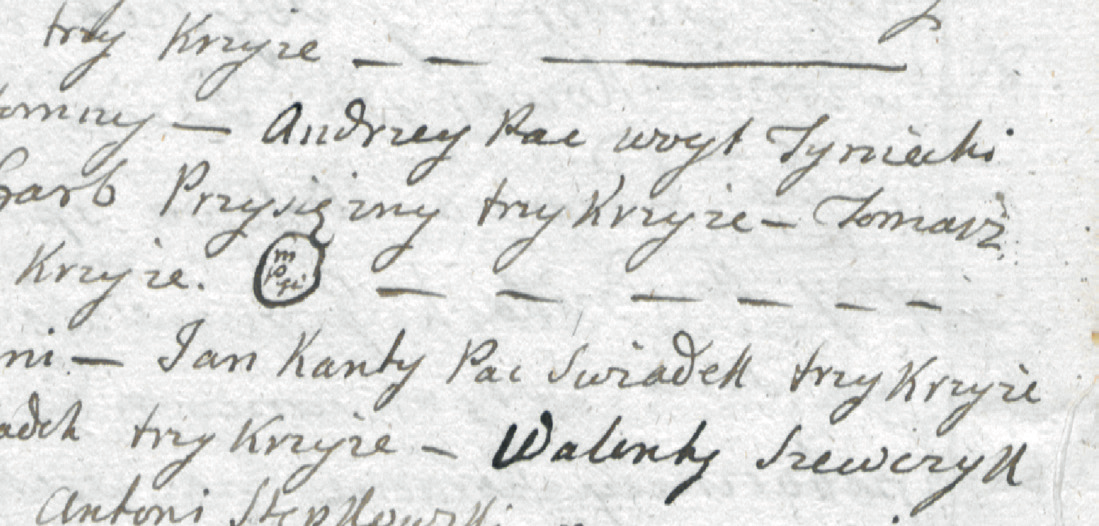 trzy Krzyze — — ———
tomny — Andrzey Pac woyt Tyniecki
Garb Przysięzny trzy Krzyze — Tomasz
Krzyze. — — — — — —
ni — Jan Kanty Pac Swiadek trzy Krzyze
adek trzy Krzyze — Walenty Szewczyk
Antoni Stępkowski